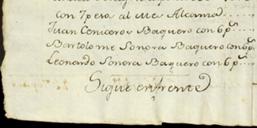 con 7 pers al me Alcanna
Juan Cenicero Baquero con 6 p.s
Bartolome Sonora Baquero con 6 p.s
Leonardo Sonora Baquero con 6 p.s
Sigue enfrente